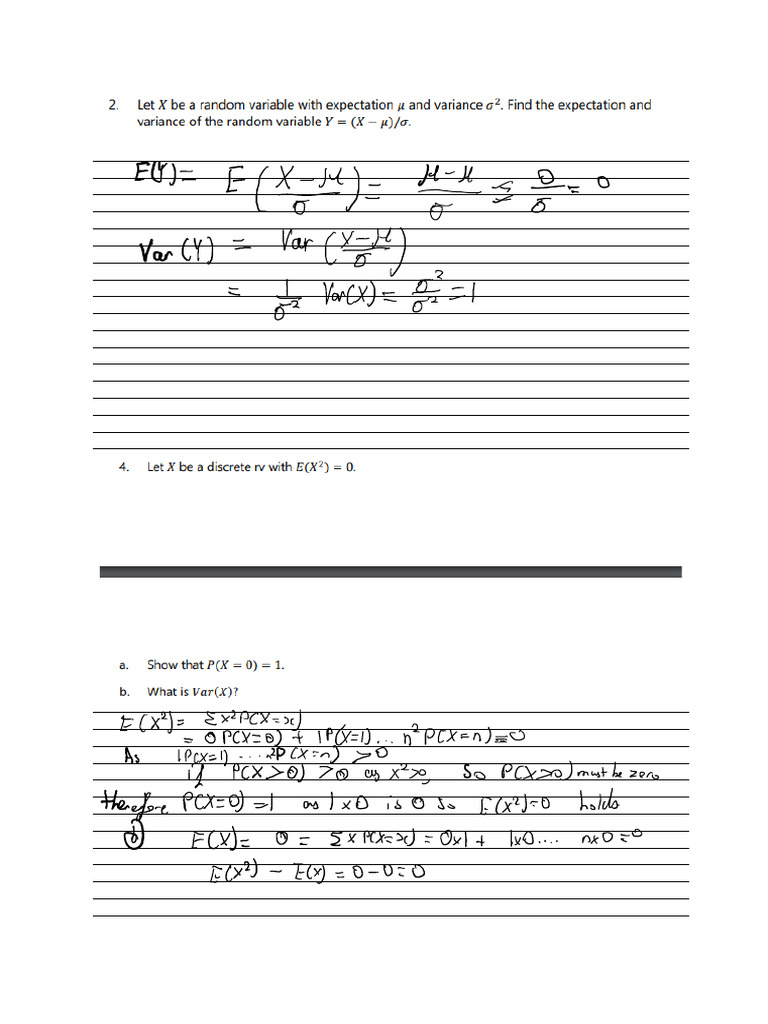 2. Let X be a random variable with expectation μ and variance σ². Find the expectation and
variance of the random variable Y = (X − μ)/σ.
E(Y) = E((X−μ)/σ) = (μ−μ)/σ = 0/σ = 0
Var(Y) = Var((X−μ)/σ)
= 1/σ² Var(X) = σ²/σ² = 1
4. Let X be a discrete rv with E(X²) = 0.
a. Show that P(X = 0) = 1.
b. What is Var(X)?
E(X²) = Σx²P(X=x)
= 0 P(X=0) + 1P(X=1)... n²P(X=n) = 0
As 1P(X=1) ... P(X=n) > 0
if P(X>0) > 0 as x²>0, So P(X>0) must be zero
therefore P(X=0) = 1 as 1×0 is 0 so E(X²)=0 holds
b) E(X) = 0 = Σx P(X=x) = 0x1 + 1x0.... nx0 = 0
E(X²) − E(X) = 0−0=0